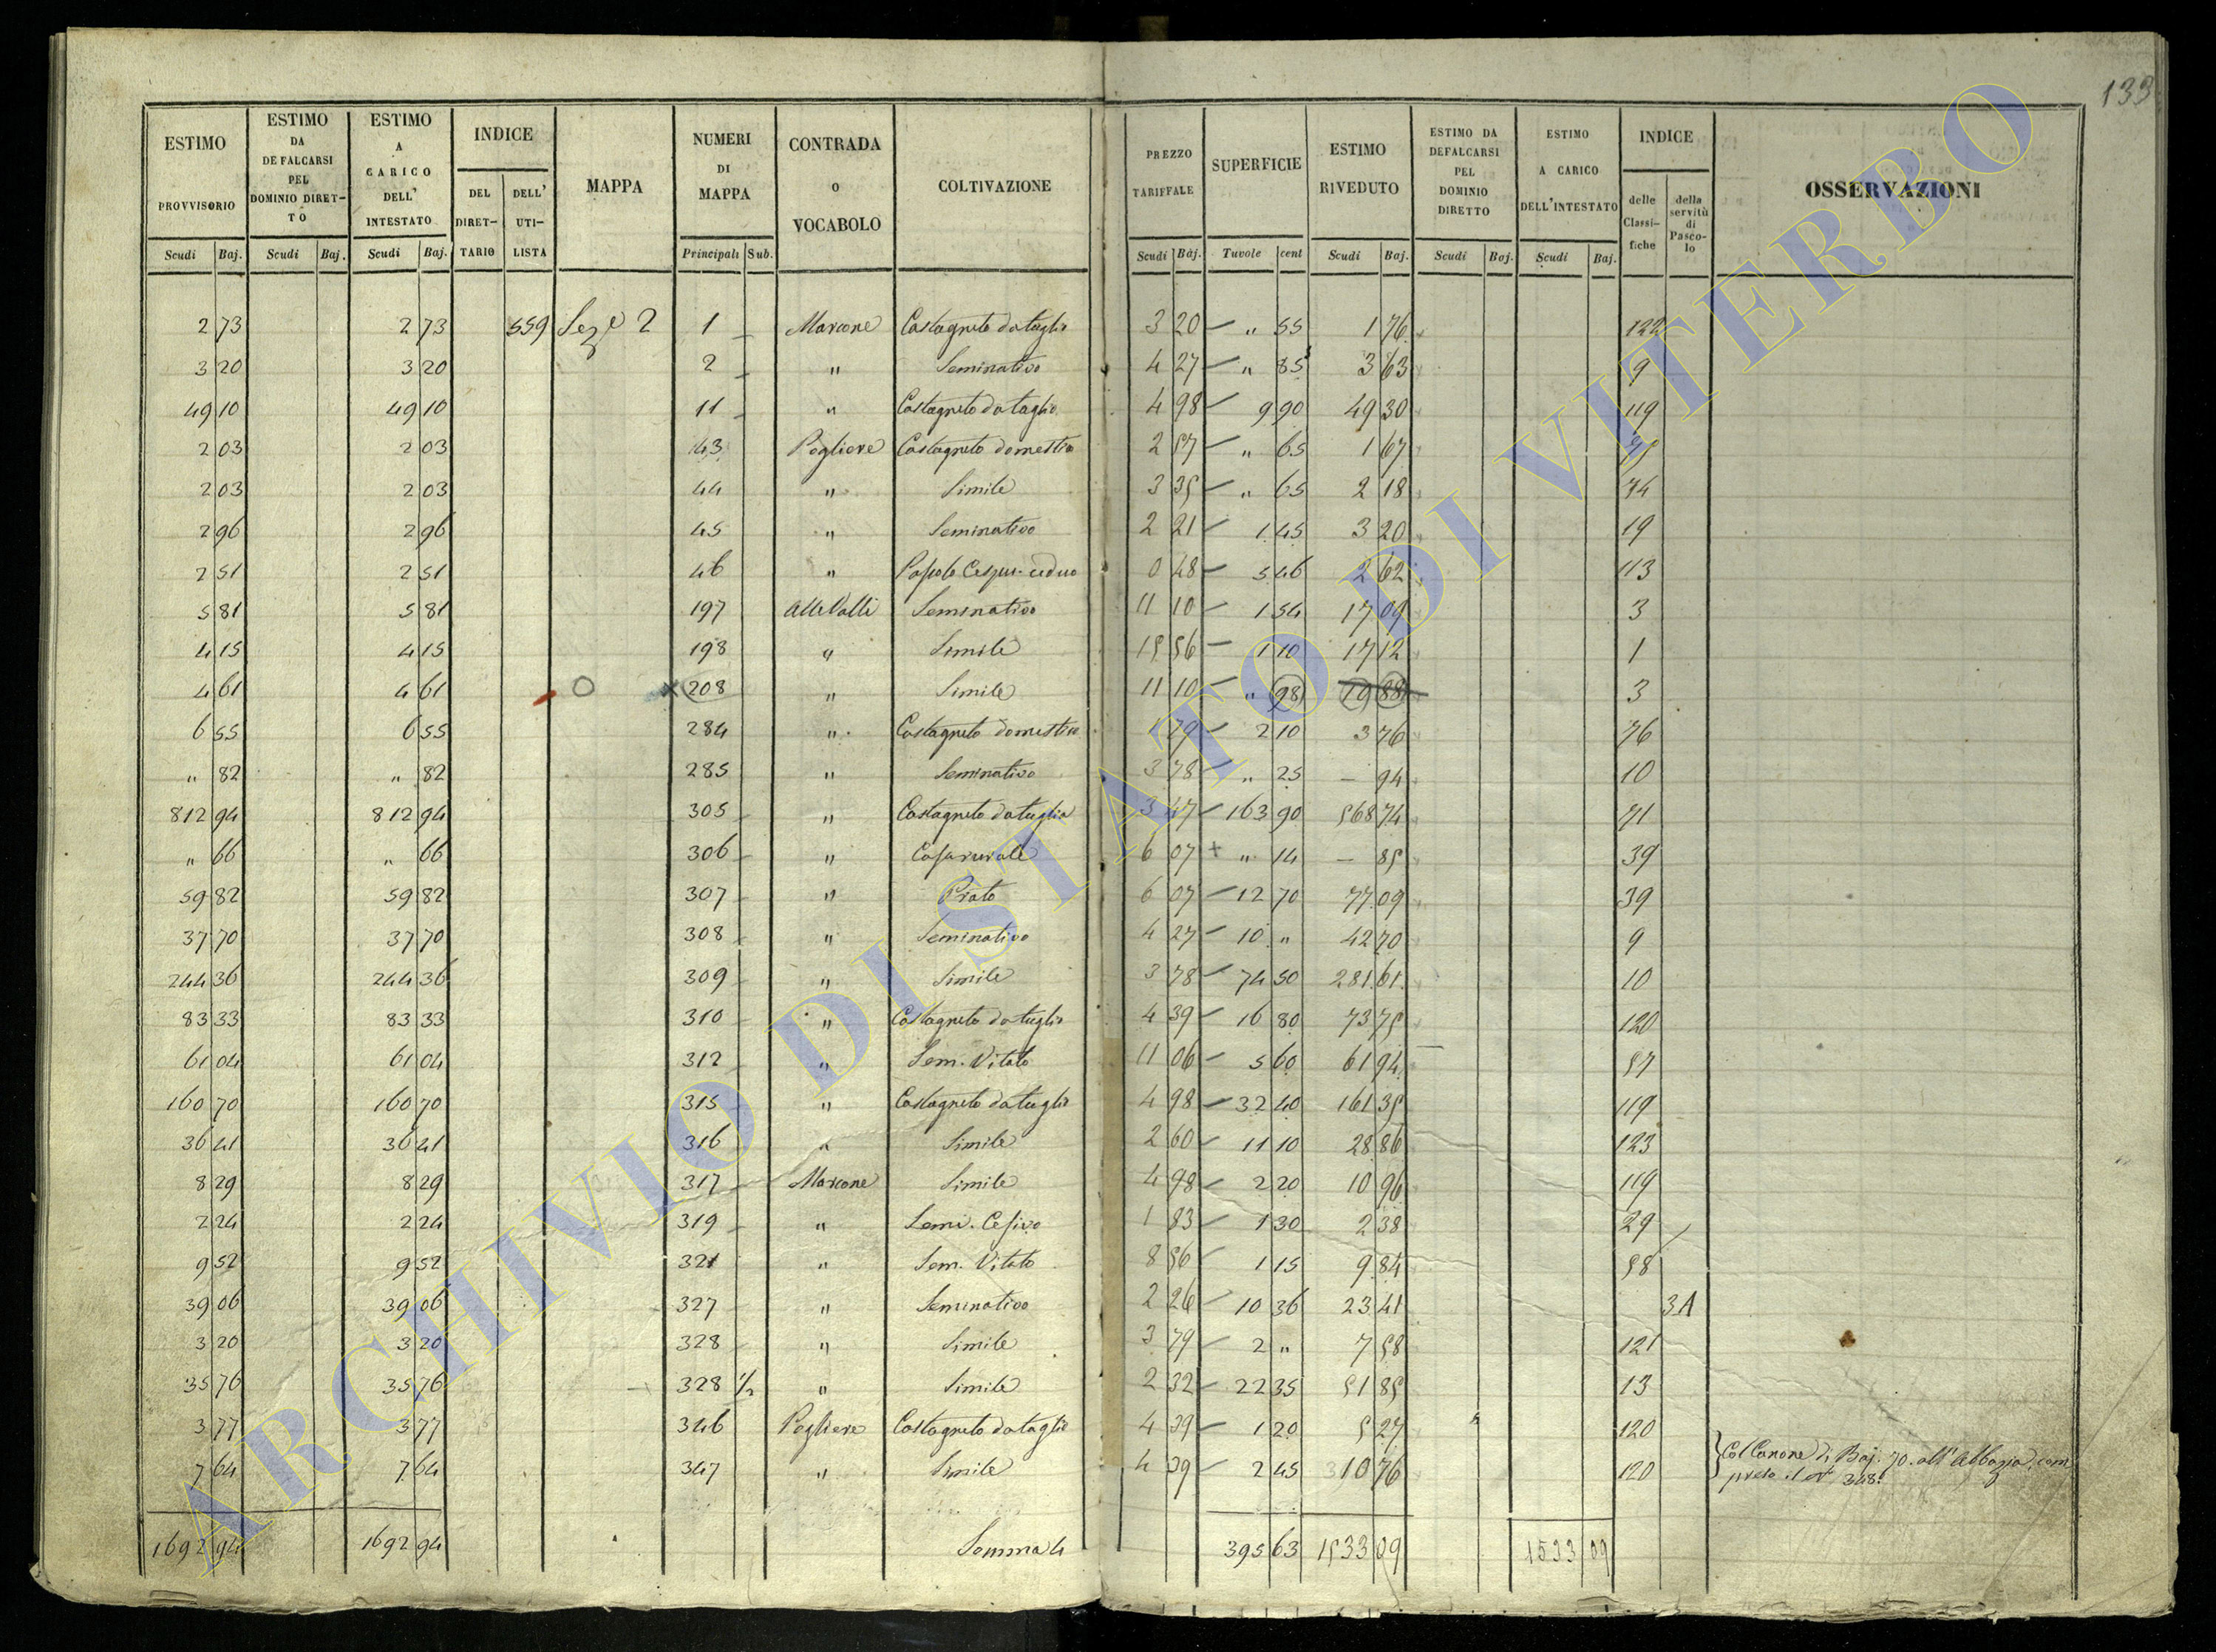 133
ESTIMO PROVVISORIO Scudi Baj.
ESTIMO DA DEFALCARSI PEL DOMINIO DIRET-TO Scudi Baj.
ESTIMO A CARICO DELL' INTESTATO Scudi Baj.
INDICE DEL DIRET-TARIO DELL' UTI-LISTA
MAPPA
NUMERI DI MAPPA Principali Sub.
CONTRADA O VOCABOLO
COLTIVAZIONE
PREZZO TARIFFALE Scudi Baj.
SUPERFICIE Tavole cent
ESTIMO RIVEDUTO Scudi Baj.
ESTIMO DA DEFALCARSI PEL DOMINIO DIRETTO Scudi Baj.
ESTIMO A CARICO DELL'INTESTATO Scudi Baj.
INDICE delle Classi-fiche della servitù di Pasco-lo
OSSERVAZIONI
2 73 2 73 559 Sez.e 2 1 Marcone Castagneto da taglio 3 20 " 55 1 76 122
3 20 3 20 2 " Seminativo 4 27 " 85 3 63 9
49 10 49 10 11 " Castagneto da taglio 4 98 9 90 49 30 119
2 03 2 03 43 Pogliere Castagneto domestico 2 57 " 65 1 67
2 03 2 03 44 " Simile 3 35 " 65 2 18 74
2 96 2 96 45 " Seminativo 2 21 1 45 3 20 19
2 51 2 51 46 " Pascolo Cespu. ceduo 0 48 5 46 2 62 113
5 81 5 81 197 Alle Valli Seminativo 11 10 1 54 17 09 3
4 15 4 15 198 " Simile 15 56 1 10 17 12 1
4 61 4 61 208 " Simile 11 10 " 98 10 88 3
6 55 6 55 284 " Castagneto domestico 1 79 2 10 3 76 76
" 82 " 82 285 " Seminativo 3 78 " 25 — 94 10
812 94 812 94 305 " Castagneto da taglio 3 47 163 90 568 74 71
" 66 " 66 306 " Casa rurale 6 07 + " 14 — 85 39
59 82 59 82 307 " Prato 6 07 12 70 77 09 39
37 70 37 70 308 " Seminativo 4 27 10 " 42 70 9
244 36 244 36 309 " Simile 3 78 74 50 281 61 10
83 33 83 33 310 " Castagneto da taglio 4 39 16 80 73 75 120
61 04 61 04 312 " Sem. Vitato 11 06 5 60 61 94 57
160 70 160 70 315 " Castagneto da taglio 4 98 32 40 161 35 119
36 41 36 41 316 " Simile 2 60 11 10 28 86 123
8 29 8 29 317 Marcone Simile 4 98 2 20 10 96 119
2 24 2 24 319 " Semi. Cesivo 1 83 1 30 2 38 29
9 52 9 52 321 " Sem. Vitato 8 56 1 15 9 84 58
39 06 39 06 327 " Seminativo 2 26 10 36 23 41 3A
3 20 3 20 328 " Simile 3 79 2 " 7 58 121
35 76 35 76 328 1/2 " Simile 2 32 22 35 51 85 13
3 77 3 77 346 Pogliere Castagneto da taglio 4 39 1 20 5 27 120
7 64 7 64 347 " Simile 4 39 2 45 10 76 120
Col Canone di Baj. 70 all'Abbazia, com
preso il N° 348.
1692 94 1692 94 Somma 395 63 1533 09 1533 09
ARCHIVIO DI STATO DI VITERBO